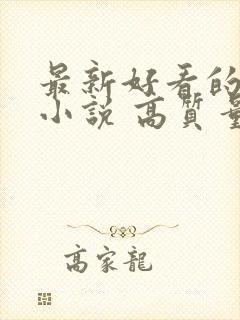 最新好看的
小说 高质量
高家龍